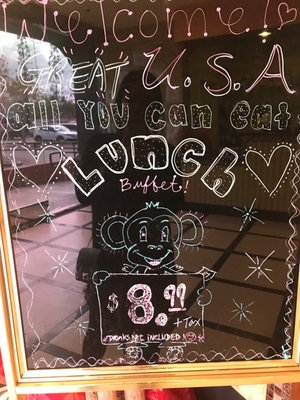 Welcome!
GREAT U.S.A
all YOU can eat
LUNCH
Buffet!
$8.99
+ Tax
DRINKS NOT INCLUDED!